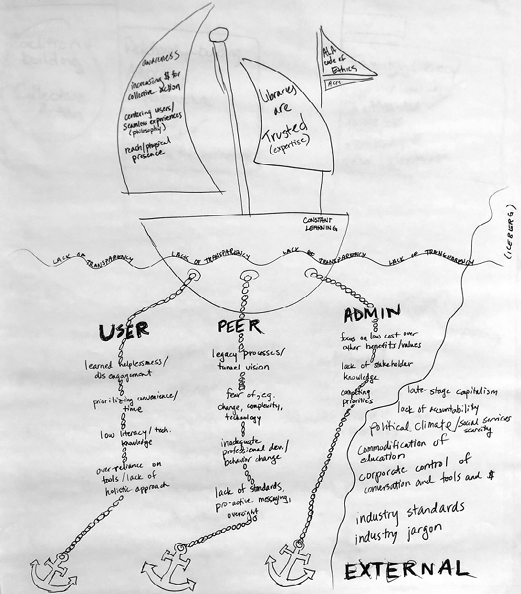 awareness
increasing $ for
collective action
centering users/
seamless experiences
(philosophy)
reach/physical
presence
Libraries
are
Trusted
(expertise)
ALA
code of
Ethics
ACRL
CONSTANT
LEARNING
LACK OF TRANSPARENCY
LACK OF TRANSPARENCY
LACK OF TRANSPARENCY
LACK OF TRANSPARENCY
(ICEBERG)
USER
learned helplessness/
disengagement
prioritizing convenience/
time
low literacy/tech.
knowledge
over-reliance on
tools/lack of
holistic approach
PEER
legacy processes/
tunnel vision
fear of, e.g.
change, complexity,
technology
inadequate
professional dev./
behavior change.
lack of standards,
pro-active messaging,
oversight
ADMIN
focus on low cost over
other benefits/values
lack of stakeholder
knowledge
competing
priorities
late stage capitalism
lack of accountability
political climate/social services
scarcity
commodification of
education
corporate control of
conversation and tools and $
industry standards
industry jargon
EXTERNAL